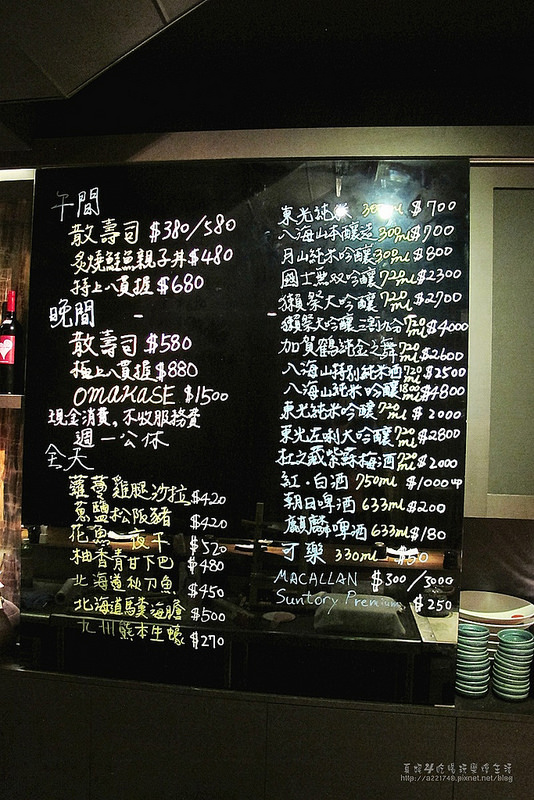 午間
散壽司 $380/580
炙燒鮭魚親子丼 $480
特上八貫握 $680
晚間
散壽司 $580
極上八貫握 $880
OMAKASE $1500
現金消費,不收服務費
週一公休
全天
蘿蔓雞腿沙拉 $420
蔥鹽松阪豬 $420
花魚一夜干 $520
柚香青甘下巴 $480
北海道秋刀魚 $450
北海道馬糞海膽 $500
九州熊本生蠔 $270
東光純 300ml $700
八海山本釀造 300ml $700
月山純米吟釀 300ml $800
國士無双吟釀 720ml $2300
獺祭大吟釀 720ml $2700
獺祭大吟釀三割九分 720ml $4000
加賀鶴純金之舞 720ml $2600
八海山特別純米酒 720ml $2500
八海山純米吟釀 1800ml $4800
東光純米吟釀 720ml $2000
東光左唎大吟釀 720ml $2800
杜之藏紫蘇梅酒 720ml $2000
紅.白酒 750ml $1000
朝日啤酒 633ml $200
麒麟啤酒 633ml $180
可樂 330ml $50
MACALLAN $300/3000
Suntory Premium $250
http://a221748.pixnet.net/blog